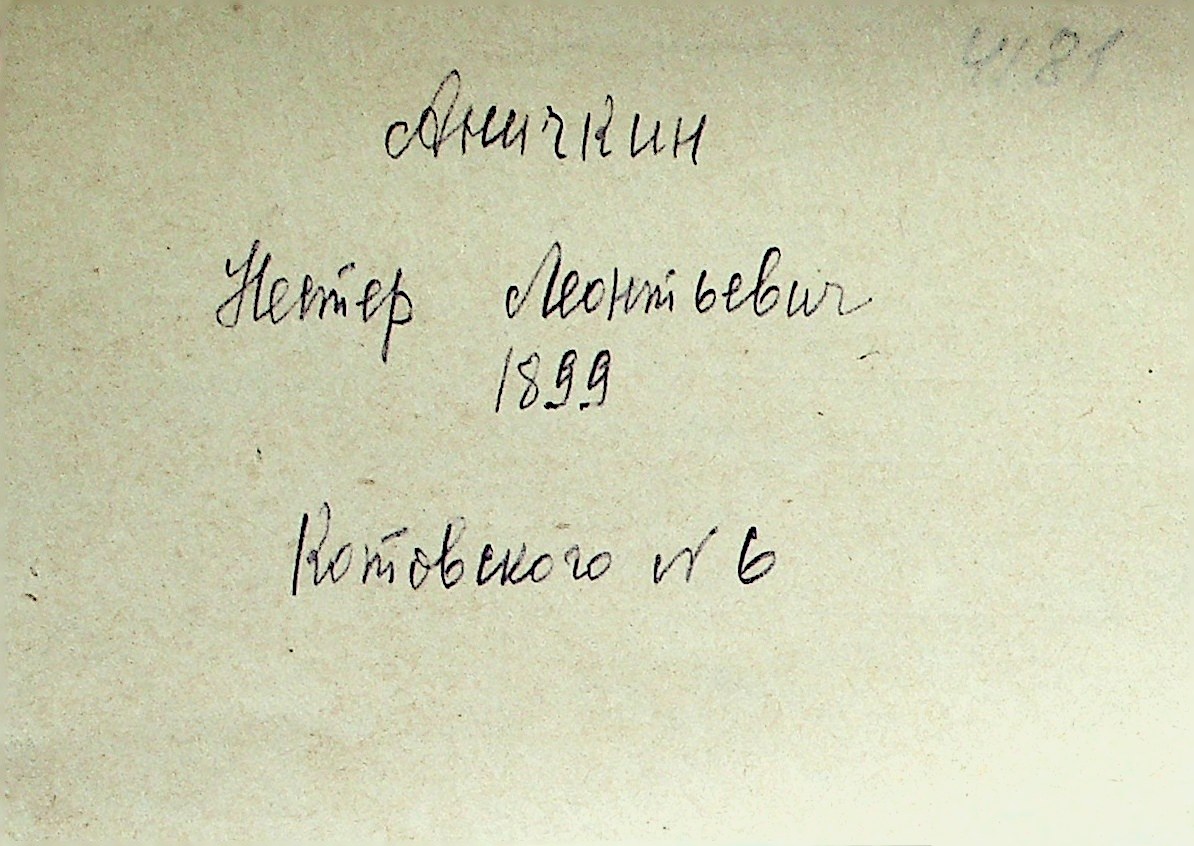 Аничкин
Нестер Леонтьевич
1899
Котовского N 6